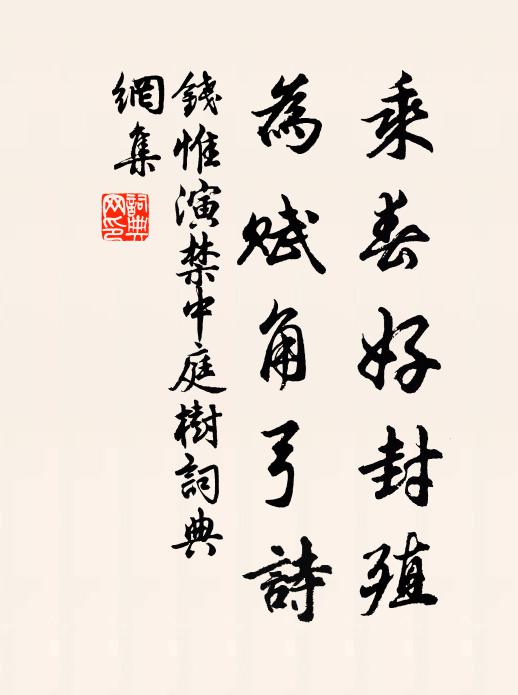 乘春好封殖
為賦角弓詩
錢惟演禁中庭樹詞典
網集
詞典
网印